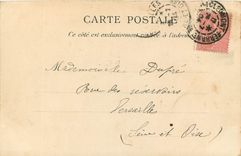 CARTE POSTALE
Ce côté est exclusivement réservé à l'adresse
Mademoiselle Dupré
Rue des réservoirs
Versailles
(Seine et Oise)